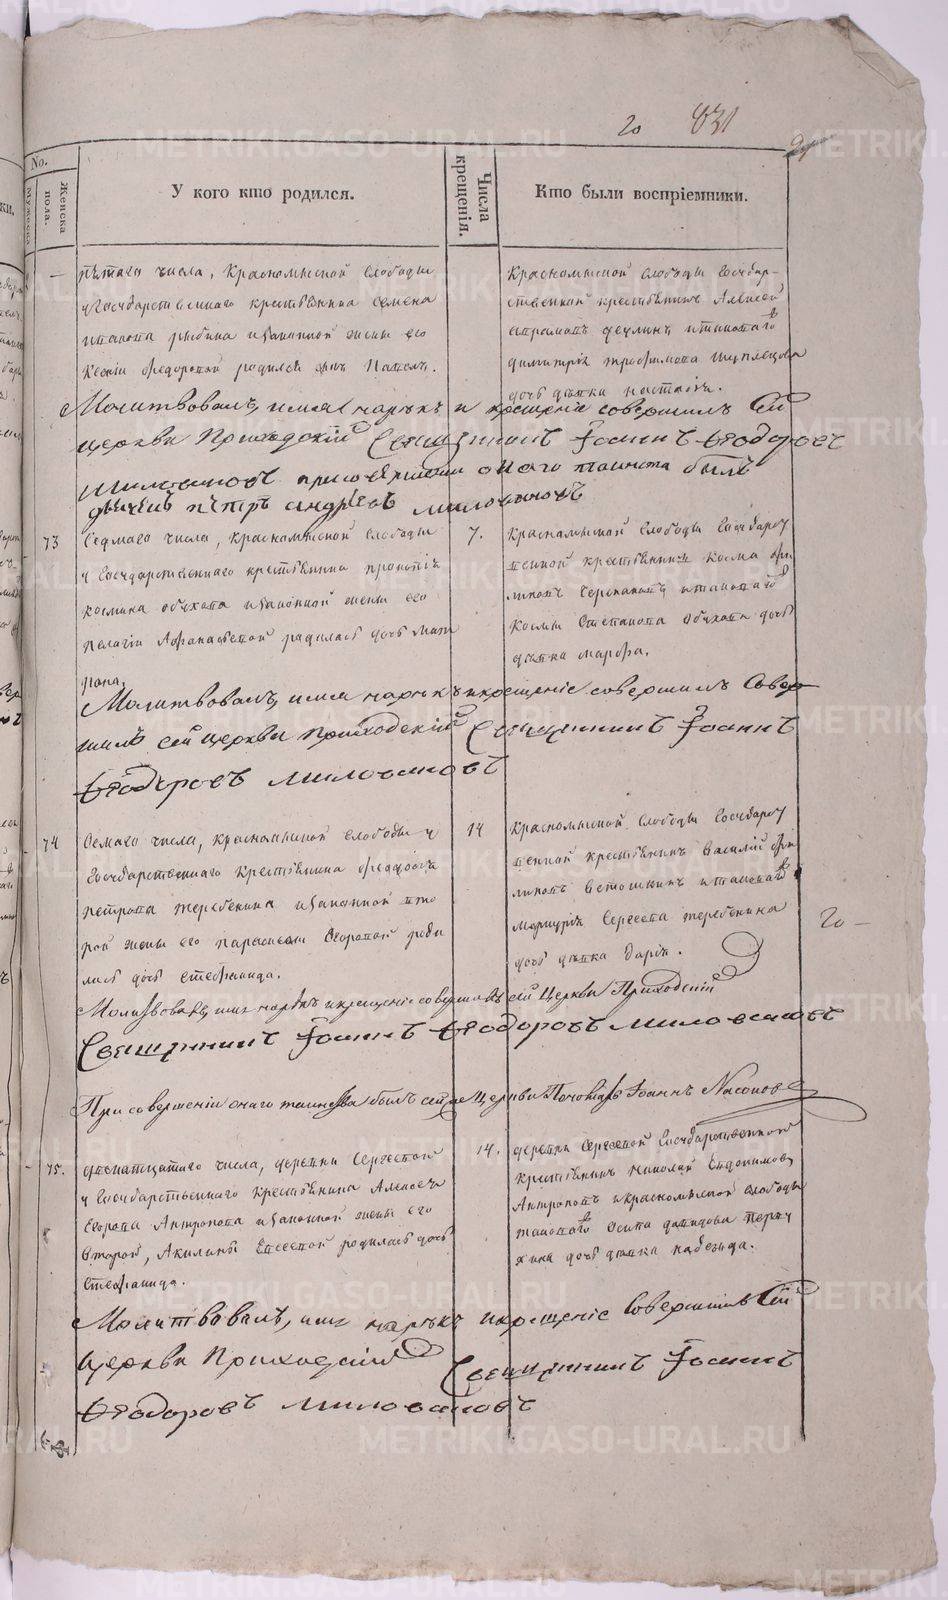 20 831
No.
Мужеска
пола.
Женска
У кого кто родился.
Числа
крещенія.
Кто были воспріемники.
пятаго числа, Красномыской слободы
у Государственнаго крестьянина Семена
рыбина и законной жены его
Ксеніи Федоровой родился сынъ Павелъ.
Красномыской слободы Государ-
ственной крестьянинъ Алексей
и таковаго
димитрія трофимова
дочь девка настасія.
Молитвовалъ, имя нарекъ и крещеніе совершилъ Сей
церкви Приходскій Священникъ Іоаннъ Ѳеодоровъ
Миловановъ при совершеніи онаго таинства былъ
дьячекъ петръ андреевъ миловановъ
73
Седмаго числа, красномыской слободы
у Государственнаго крестьянина прокопія
космина обухова и законной жены его
пелагіи Афанасьевой родилась дочь Мат
рона.
7.
Красномыской слободы Государст
венной крестьянинъ Косма
и таковаго
Космы Степанова Обухова дочь
девка марфа.
Молитвовалъ, имя нарекъ и крещеніе совершилъ Совер
шилъ сей церкви Приходскій Священникъ Іоаннъ
Ѳеодоровъ Миловановъ
74
Семаго числа, красномыской слободы у
Государственнаго Крестьянина Феодосія
петрова теребенина и законной вто
рой жены его парасковьи Егоровой роди
лась дочь Стефанида.
14
Красномыской слободы Государст
венной крестьянинъ василій фи
липовъ ветошкинъ и таковаго
Меркурія Сергеева теребенина
дочь девка дарія.
20 —
Молитвовалъ, имя нарекъ и крещеніе совершилъ сей Церкви Приходскій
Священникъ Іоаннъ Ѳеодоровъ Миловановъ
При совершеніи онаго таинства былъ сей же Церкви Пономарь Іоаннъ Насоновъ
75.
двенатцатаго числа, деревни Сергеевой
у Государственнаго Крестьянина Алексея
Егорова Антропова и законной жены его
второй, Акилины Евсеевой родилась дочь
Стефанида.
14.
деревни Сергеевой Государственной
крестьянинъ николай Евдокимовъ
Антроповъ и красномыской слободы
таковаго Осипа давидова
дочь девка надежда.
Молитвовалъ, имя нарекъ и крещеніе Совершилъ Сей
Церкви Приходскій Священникъ Іоаннъ
Ѳеодоровъ Миловановъ
METRIKI.GASO-URAL.RU